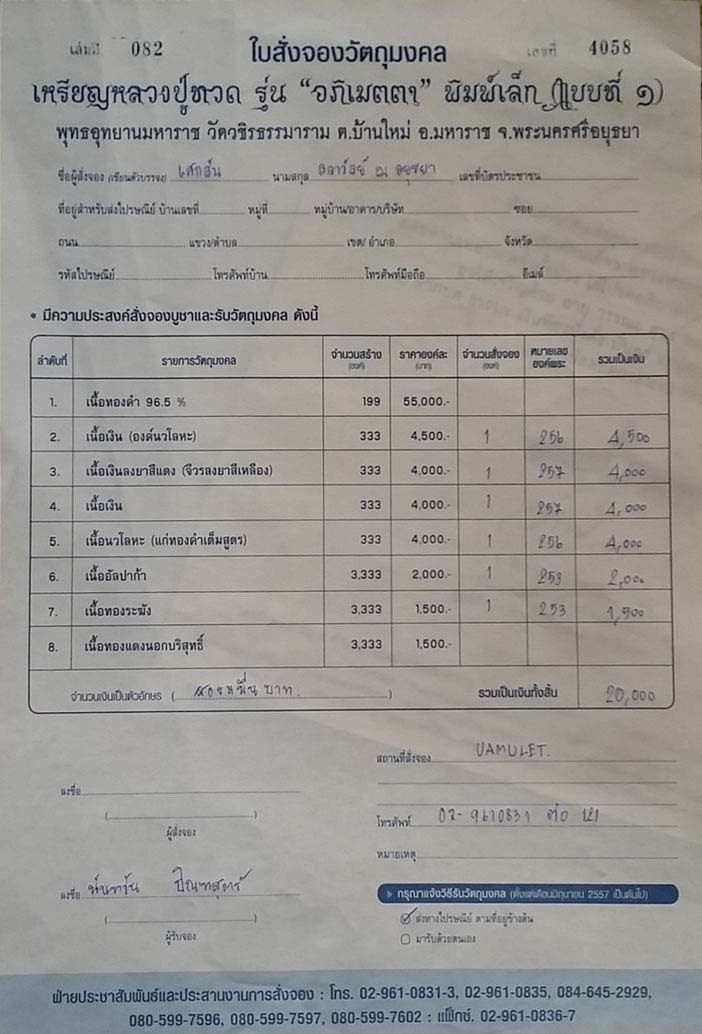 เล่มที่ 082 ใบสั่งจองวัตถุมงคล เลขที่ 4058
เหรียญหลวงปู่ทวด รุ่น “อภิเมตตา” พิมพ์เล็ก (แบบที่ ๑)
พุทธอุทยานมหาราช วัดวชิรธรรมาราม ต.บ้านใหม่ อ.มหาราช จ.พระนครศรีอยุธยา
ชื่อผู้สั่งจอง (เขียนตัวบรรจง) เสกสัน นามสกุล ณ อยุธยา เลขที่บัตรประชาชน
ที่อยู่สำหรับส่งไปรษณีย์ บ้านเลขที่ หมู่ที่ หมู่บ้าน/อาคาร/บริษัท ซอย
ถนน แขวง/ตำบล เขต/ อำเภอ จังหวัด
รหัสไปรษณีย์ โทรศัพท์บ้าน โทรศัพท์มือถือ อีเมล์
• มีความประสงค์สั่งจองบูชาและรับวัตถุมงคล ดังนี้
ลำดับที่ รายการวัตถุมงคล จำนวนสร้าง (องค์) ราคาองค์ละ (บาท) จำนวนสั่งจอง (องค์) หมายเลของค์พระ รวมเป็นเงิน
1. เนื้อทองคำ 96.5 % 199 55,000.-
2. เนื้อเงิน (องค์นวโลหะ) 333 4,500.- 1 256 4,500
3. เนื้อเงินลงยาสีแดง (จีวรลงยาสีเหลือง) 333 4,000.- 1 257 4,000
4. เนื้อเงิน 333 4,000.- 1 257 4,000
5. เนื้อนวโลหะ (แก่ทองคำเต็มสูตร) 333 4,000.- 1 256 4,000
6. เนื้ออัลปาก้า 3,333 2,000.- 1 253 2,000
7. เนื้อทองระฆัง 3,333 1,500.- 1 253 1,500
8. เนื้อทองแดงนอกบริสุทธิ์ 3,333 1,500.-
จำนวนเงินเป็นตัวอักษร ( สองหมื่นบาท. ) รวมเป็นเงินทั้งสิ้น 20,000
สถานที่สั่งจอง UAMULET.
ลงชื่อ
( )
ผู้สั่งจอง
โทรศัพท์ 02-9610831 ต่อ 121
หมายเหตุ
ลงชื่อ
( )
ผู้รับจอง
กรุณาแจ้งวิธีรับวัตถุมงคล (ตั้งแต่เดือนมิถุนายน 2557 เป็นต้นไป)
ส่งทางไปรษณีย์ ตามที่อยู่ข้างต้น
มารับด้วยตนเอง
ฝ่ายประชาสัมพันธ์และประสานงานการสั่งจอง : โทร. 02-961-0831-3, 02-961-0835, 084-645-2929,
080-599-7596, 080-599-7597, 080-599-7602 : แฟ็กซ์. 02-961-0836-7